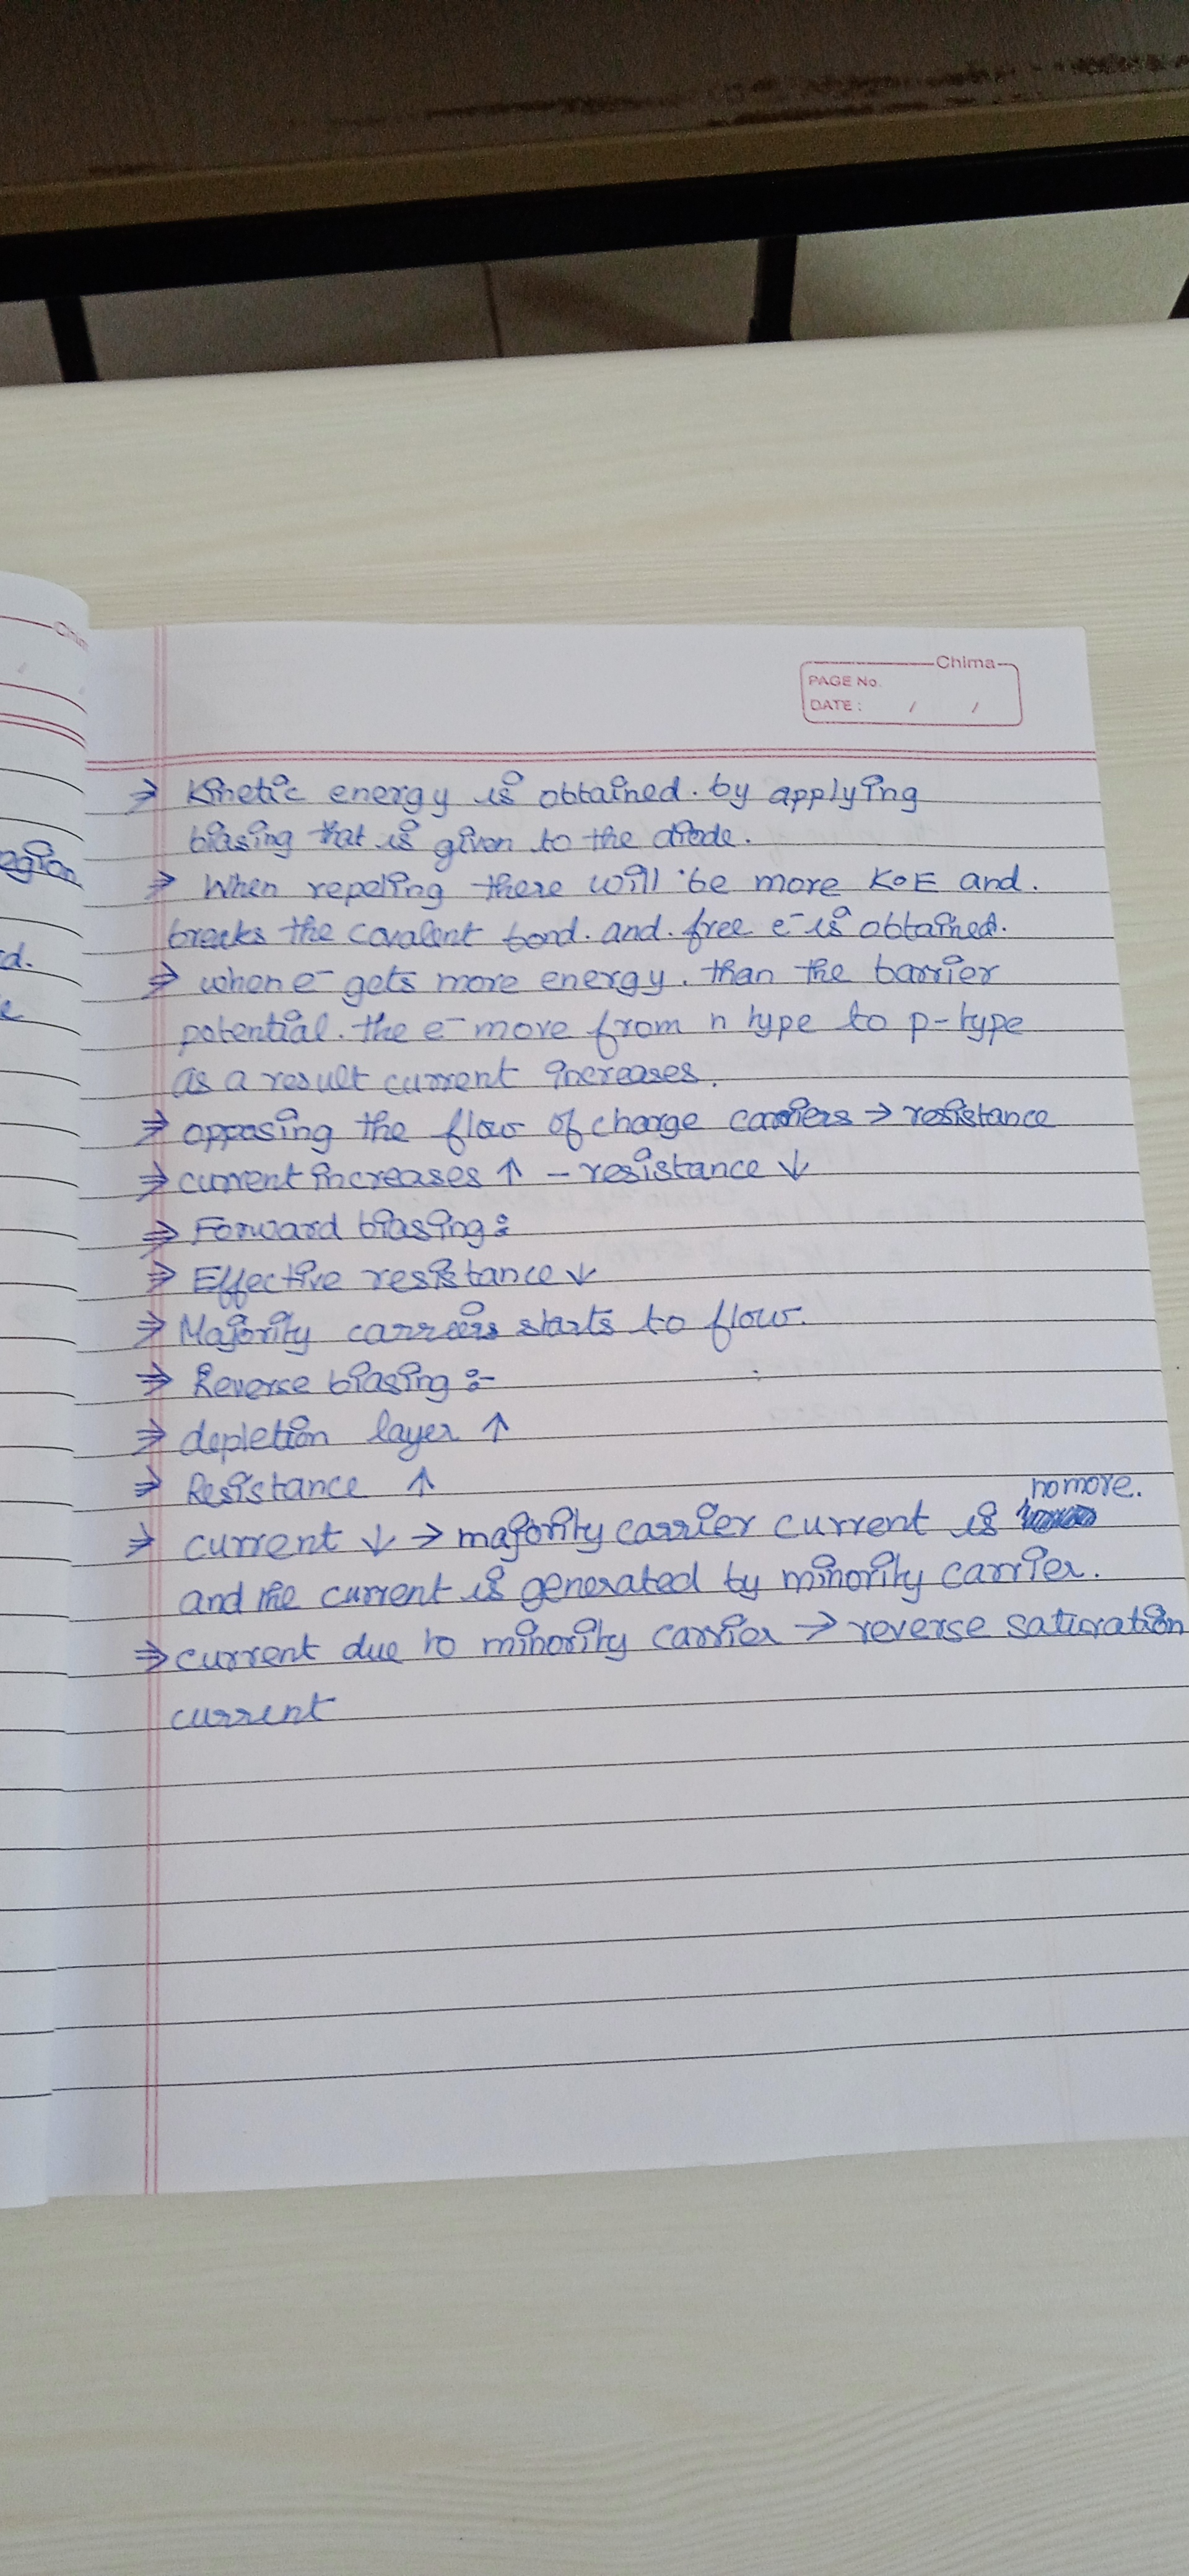 Chima
PAGE No.
DATE : / /
⇒ Kinetic energy is obtained. by applying
biasing that is given to the diode.
egion
⇒ When repelling there will be more K.E and.
breaks the covalent bond. and. free e⁻ is obtained.
d.
⇒ when e⁻ gets more energy. than the barrier
potential. the e⁻ move from n type to p-type
as a result current increases.
⇒ opposing the flow of charge carriers → resistance
⇒ current increases ↑ - resistance ↓
⇒ Forward biasing :
⇒ Effective resistance ↓
⇒ Majority carriers starts to flow.
⇒ Reverse biasing :-
⇒ depletion layer ↑
⇒ Resistance ↑
no more.
⇒ current ↓ → majority carrier current is
and the current is generated by minority carrier.
⇒ current due to minority carrier → reverse saturation
current